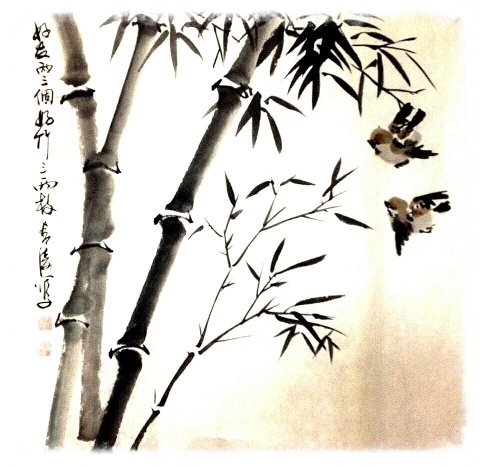 好友兩三個好竹三兩枝 寫